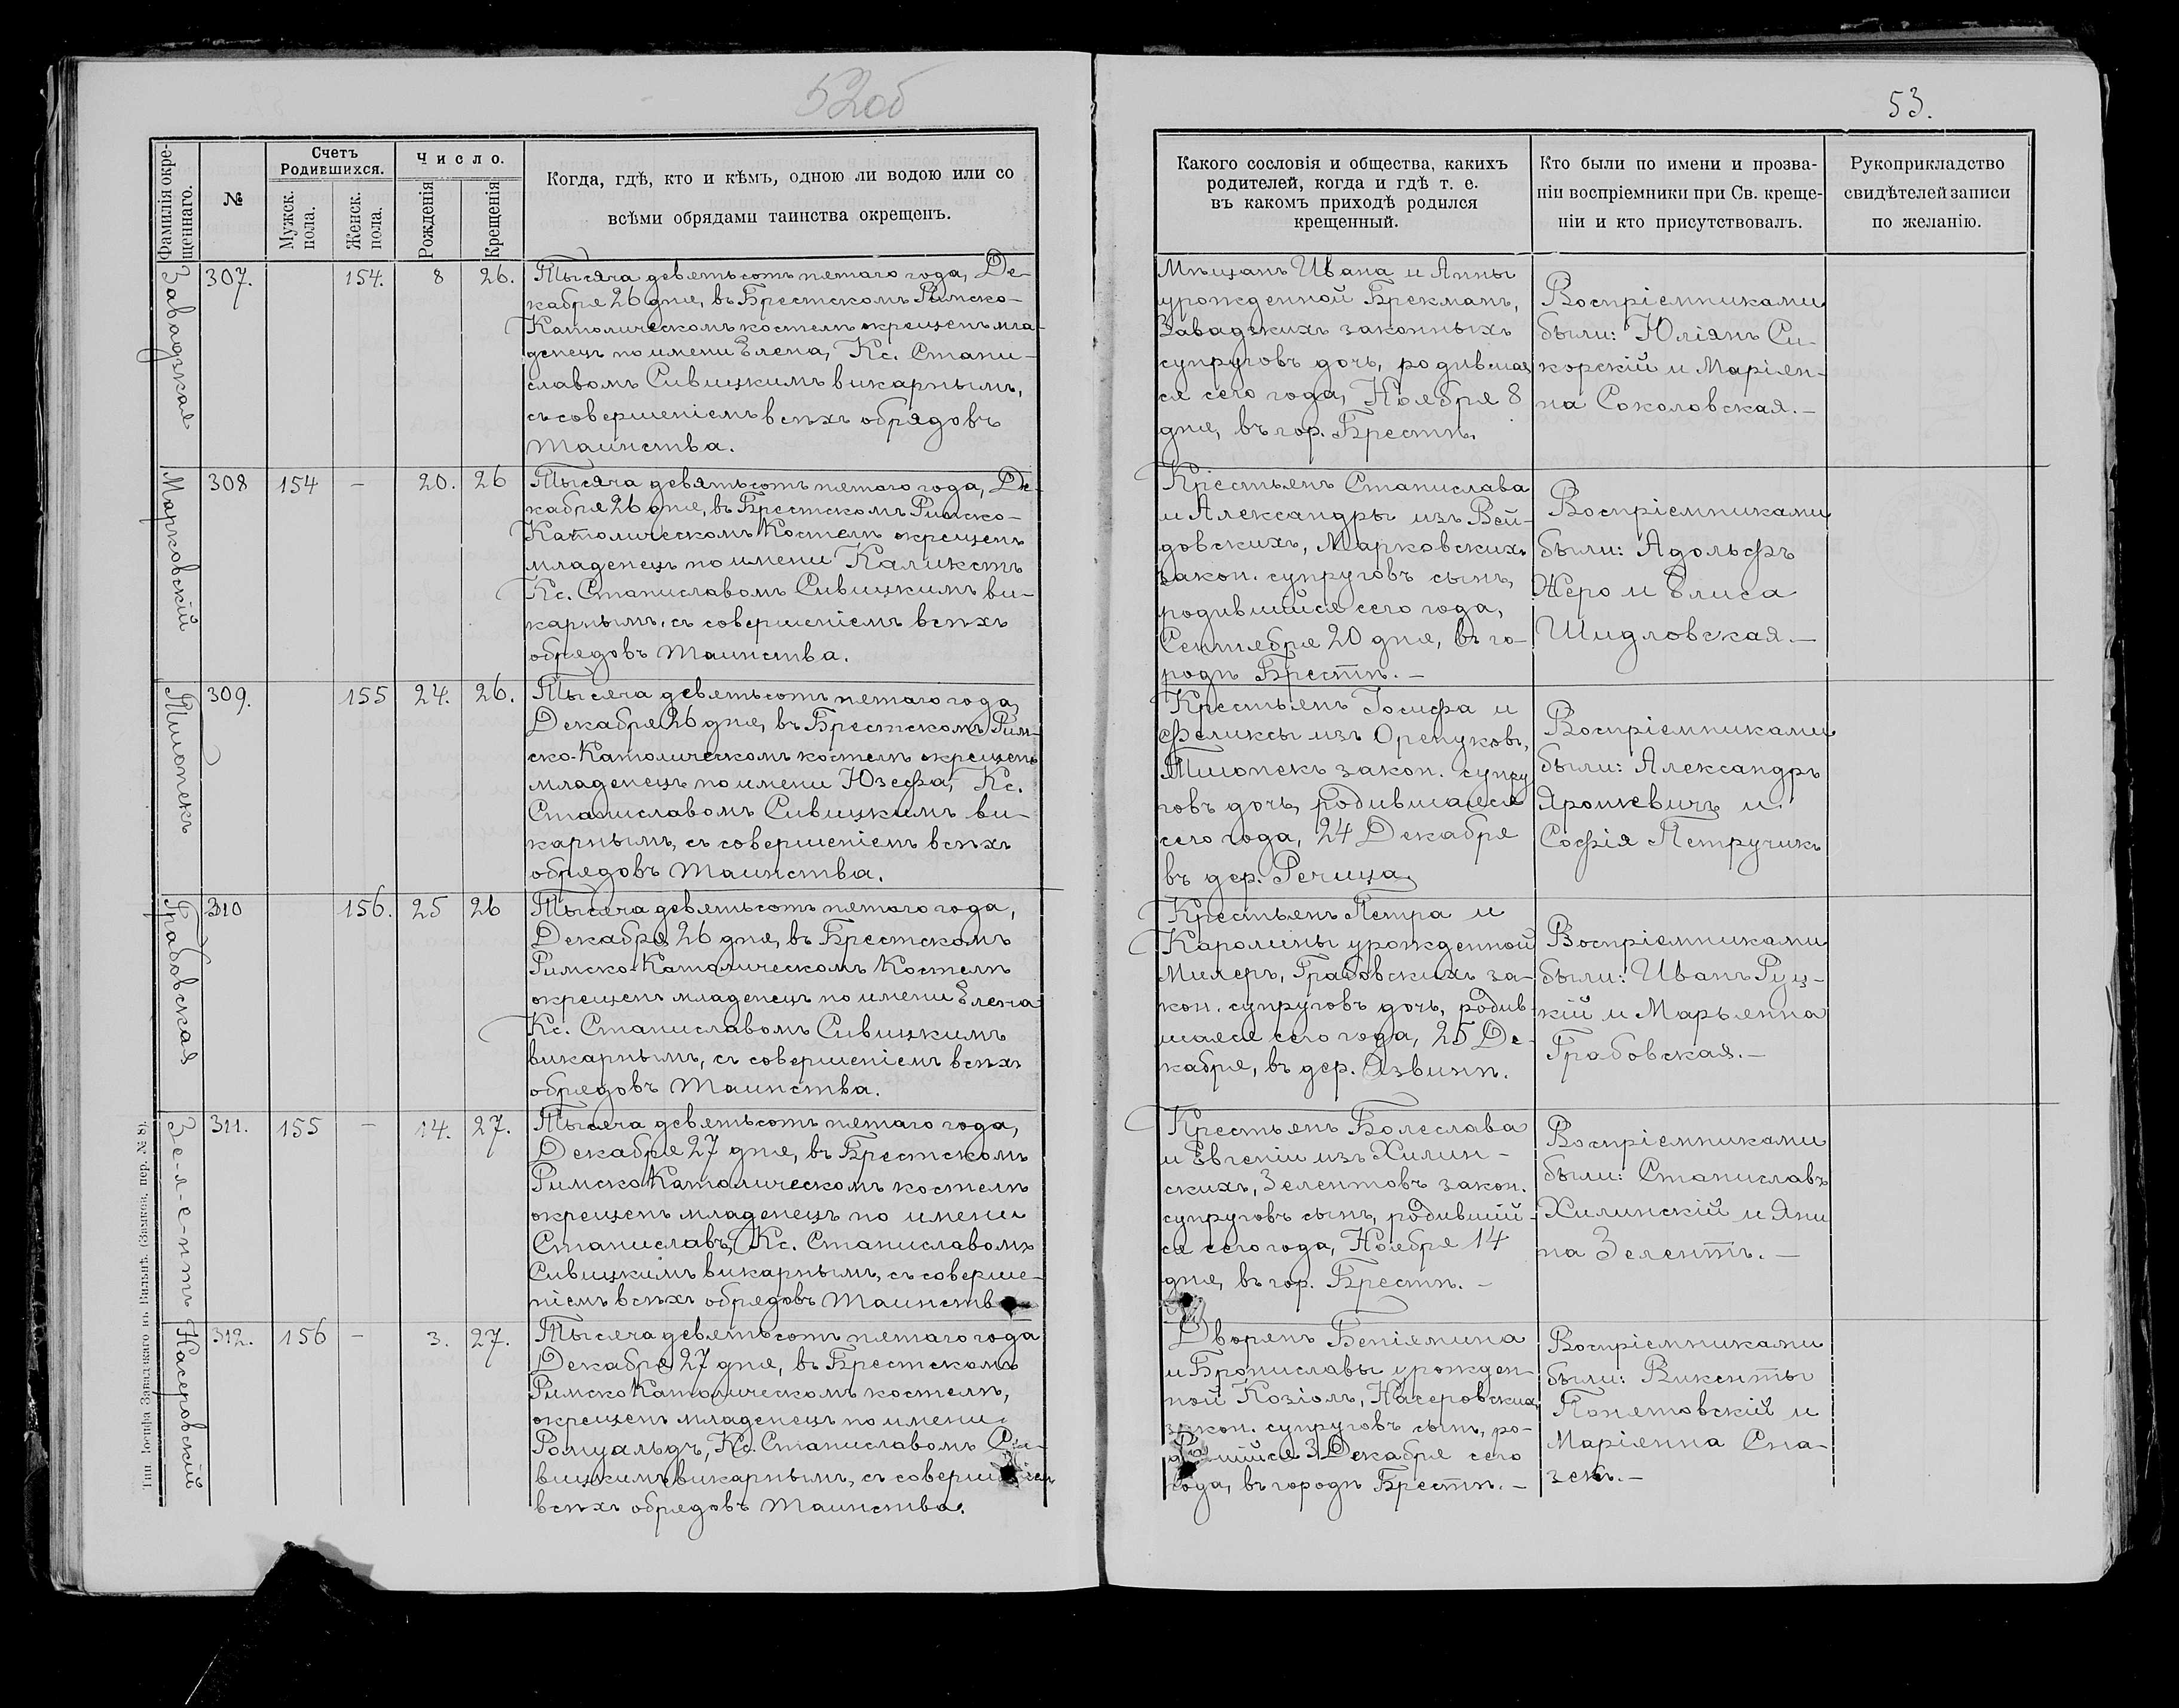 52об
53.
Фамилія окре-
щеннаго.
№
Счетъ
Родившихся.
Мужск.
пола.
Женск.
пола.
Число.
Рожденія
Крещенія
Когда, гдѣ, кто и кѣмъ, одною ли водою или со
всѣми обрядами таинства окрещенъ.
Какого сословія и общества, какихъ
родителей, когда и гдѣ т. е.
въ какомъ приходѣ родился
крещенный.
Кто были по имени и прозва-
ніи воспріемники при Св. креще-
ніи и кто присутствовалъ.
Рукоприкладство
свидѣтелей записи
по желанію.
Завадзкая
307.
154.
8
26.
Тысяча девятьсотъ пятаго года, Де-
кабря 26 дня, въ Брестскомъ Римско-
Католическомъ костелѣ окрещенъ мла-
денецъ по имени Елена, Кс. Стани-
славомъ Сивицкимъ викарнымъ,
съ совершеніемъ всѣхъ обрядовъ
таинства.
Мѣщанъ Ивана и Анны
урожденной Брекманъ,
Завадзкихъ законныхъ
супруговъ дочь, родившая
ся сего года, Ноября 8
дня, въ гор. Брестѣ.
Воспріемниками
были: Юліянъ Си-
корскій и Маріян-
на Соколовская.-
Марковскій
308
154
-
20.
26
Тысяча девятьсотъ пятаго года, Де-
кабря 26 дня, въ Брестскомъ Римско-
Католическомъ Костелѣ окрещенъ
младенецъ по имени Каликстъ
Кс. Станиславомъ Сивицкимъ ви-
карнымъ, съ совершеніемъ всѣхъ
обрядовъ таинства.
Крестьянъ Станислава
и Александры изъ Вой-
довскихъ, Марковскихъ
закон. супруговъ сынъ,
родившійся сего года,
Сентября 20 дня, въ го-
родѣ Брестѣ.-
Воспріемниками
были: Адольфъ
Жеро и Елиса
Шидловская.-
309.
155
24.
26.
Тысяча девятьсотъ пятаго года,
Декабря 26 дня, въ Брестскомъ Рим-
ско-Католическомъ костелѣ окрещенъ
младенецъ по имени Юзефа, Кс.
Станиславомъ Сивицкимъ ви-
карнымъ, съ совершеніемъ всѣхъ
обрядовъ таинства.
Крестьянъ Іосифа и
Феликсы изъ Оренуковъ,
закон. супру
говъ дочь, родившаяся
сего года, 24 Декабря
въ дер. Речица.
Воспріемниками
были: Александръ
Ярошевичъ и
Софія Петручикъ
Грабовская
310
156.
25
26
Тысяча девятьсотъ пятаго года,
Декабря 26 дня, въ Брестскомъ
Римско-Католическомъ Костелѣ
окрещенъ младенецъ по имени Елена
Кс. Станиславомъ Сивицкимъ
викарнымъ, съ совершеніемъ всѣхъ
обрядовъ таинства.
Крестьянъ Петра и
Каролины урожденной
Милеръ, Грабовскихъ за-
кон. супруговъ дочь, родив-
шаяся сего года, 25 Де-
кабря, въ дер. Язвинѣ.
Воспріемниками
были: Иванъ Руц-
кій и Марьянна
Грабовская.-
Зе-л-е-нтъ
311.
155
-
14.
27.
Тысяча девятьсотъ пятаго года,
Декабря 27 дня, въ Брестскомъ
Римско Католическомъ костелѣ
окрещенъ младенецъ по имени
Станиславъ, Кс. Станиславомъ
Сивицкимъ викарнымъ, съ соверше-
ніемъ всѣхъ обрядовъ таинств
Крестьянъ Болеслава
и Евгеніи изъ Хилин-
скихъ, Зелентовъ закон.
супруговъ сынъ, родившій-
ся сего года, Ноября 14
дня, въ гор. Брестѣ.-
Воспріемниками
были: Станиславъ
Хилинскій и Яни
на Зелентъ.-
Насеровскій
312.
156
-
3.
27.
Тысяча девятьсотъ пятаго года
Декабря 27 дня, въ Брестскомъ
Римско Католическомъ костелѣ,
окрещенъ младенецъ по имени
Ромуальдъ, Кс. Станиславомъ Си-
вицкимъ викарнымъ, съ совершеніем
всѣхъ обрядовъ таинства.
Дворянъ Беніямина
и Брониславы урожден-
ной Козіолъ, Насеровскихъ
закон. супруговъ сынъ, ро-
дившійся 3 Декабря сего
года, въ городѣ Брестѣ.-
Воспріемниками
были: Викенты
Понятовскій и
Маріянна Спа-
зекъ.-
Тип. Іосифа Завадзкаго въ Вильнѣ. (Замков. пер. № 8).